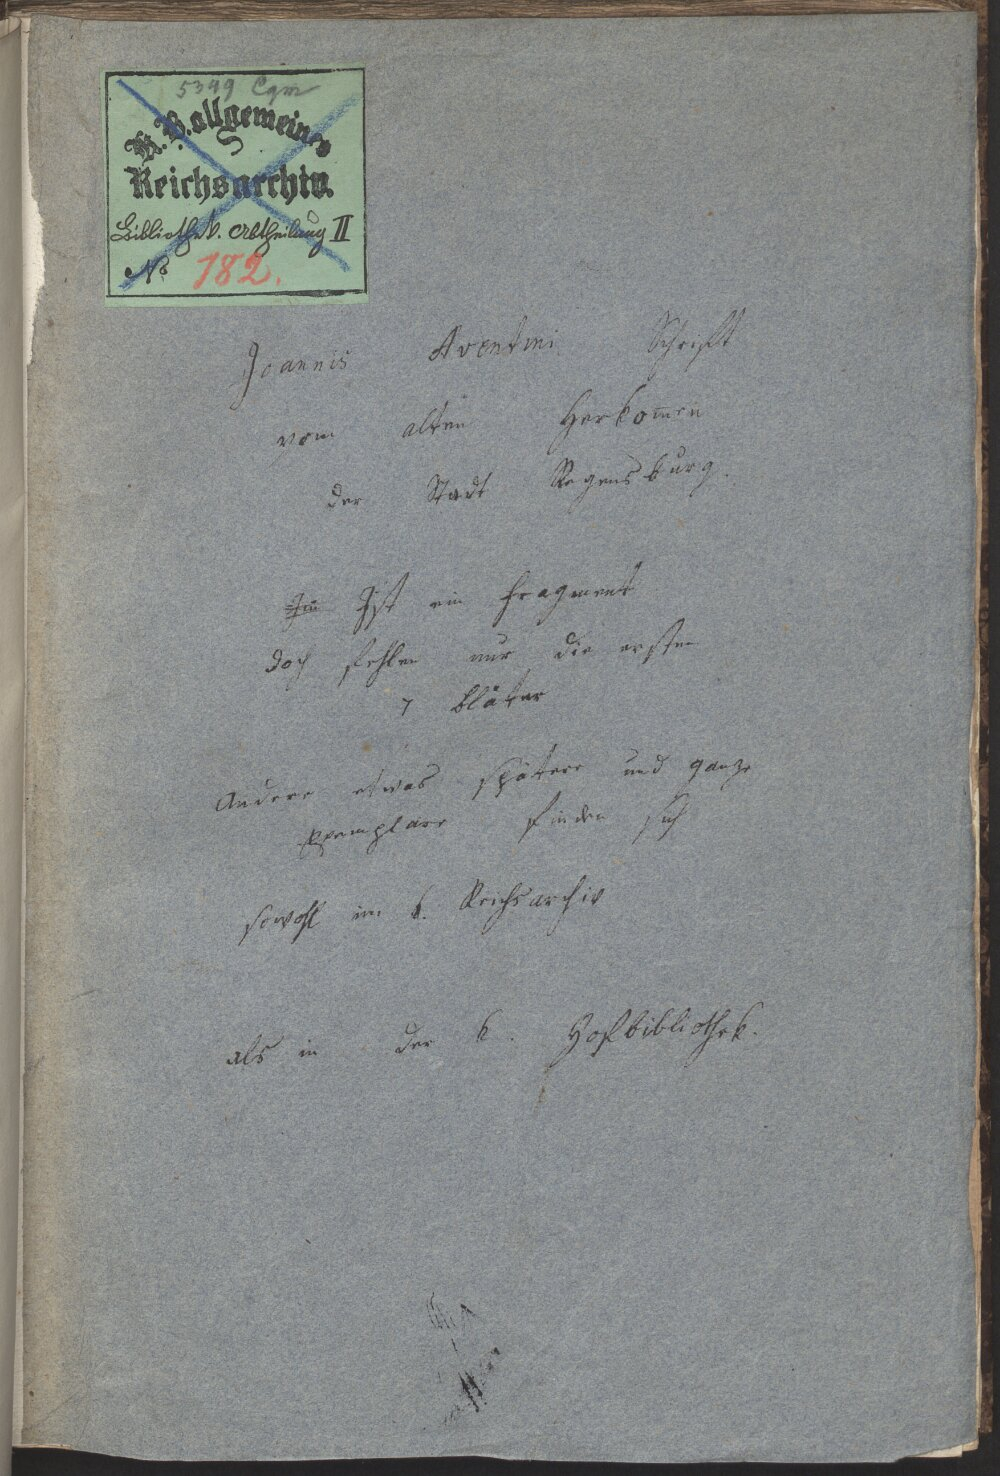 5399 Cgm
K. B. allgemeines
Reichsarchiv.
Bibliothek. Abtheilung II
No 182.
Joannis Aventini Schrift
vom alten Herkom̄en
der Stadt Regensburg.
Ist ein Fragment
doch fehlen nur die ersten
7 Bläter
Andere etwas spätere und ganze
Exemplare finden sich
sowohl im k. Reichsarchiv
als in der k. Hofbibliothek.